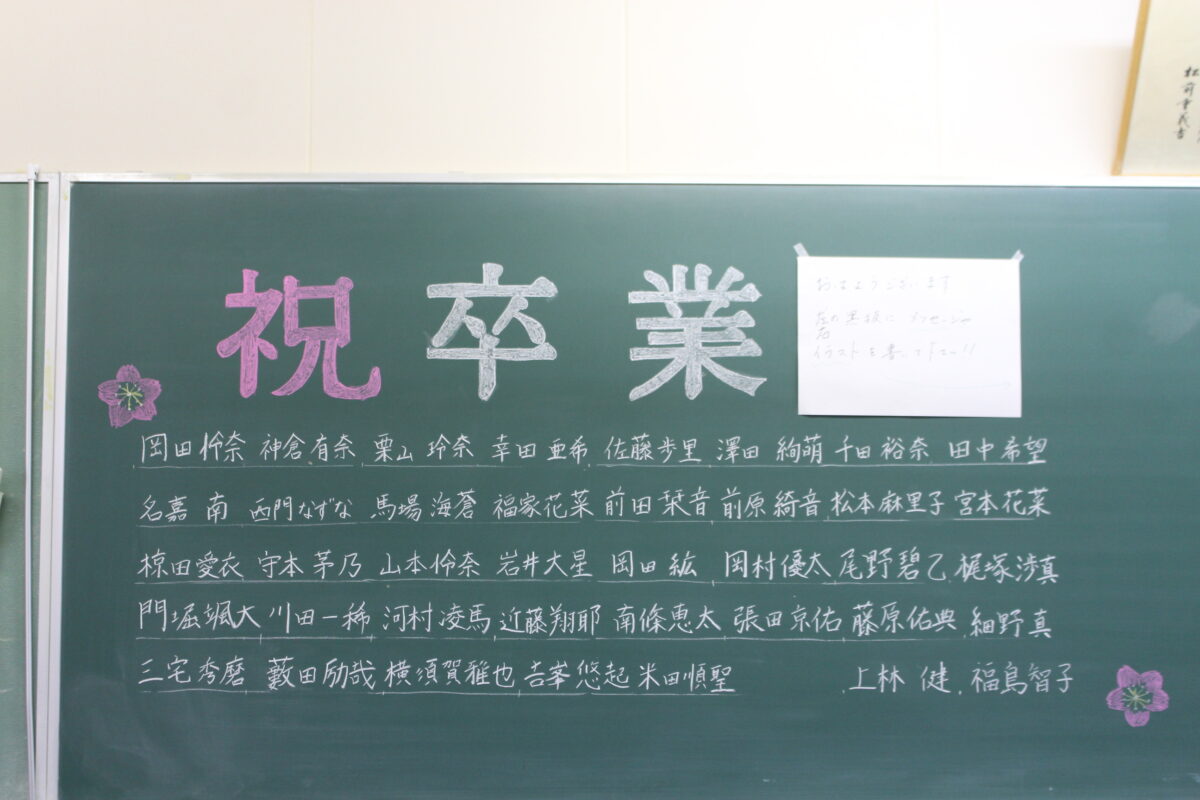 松前重義書
祝卒業
おはようございます
左の黒板に メッセージ
イラストを書いて下さい!!
岡田怜奈 神倉有奈 栗山玲奈 幸田亜希 佐藤歩里 澤田絢萌 千田裕奈 田中希望
名嘉南 西門なずな 馬場海蒼 福家花菜 前田栞音 前原綺音 松本麻里子 宮本花菜
椋田愛衣 守本茅乃 山本怜奈 岩井大星 岡田紘 岡村優太 尾野碧乙 梶塚渉真
門堀颯大 川田一稀 河村凌馬 近藤翔耶 南條恵太 張田京佑 藤原佑典 細野真
三宅秀磨 藪田励哉 横須賀雅也 吉峯悠起 米田順聖 上林健 福島智子